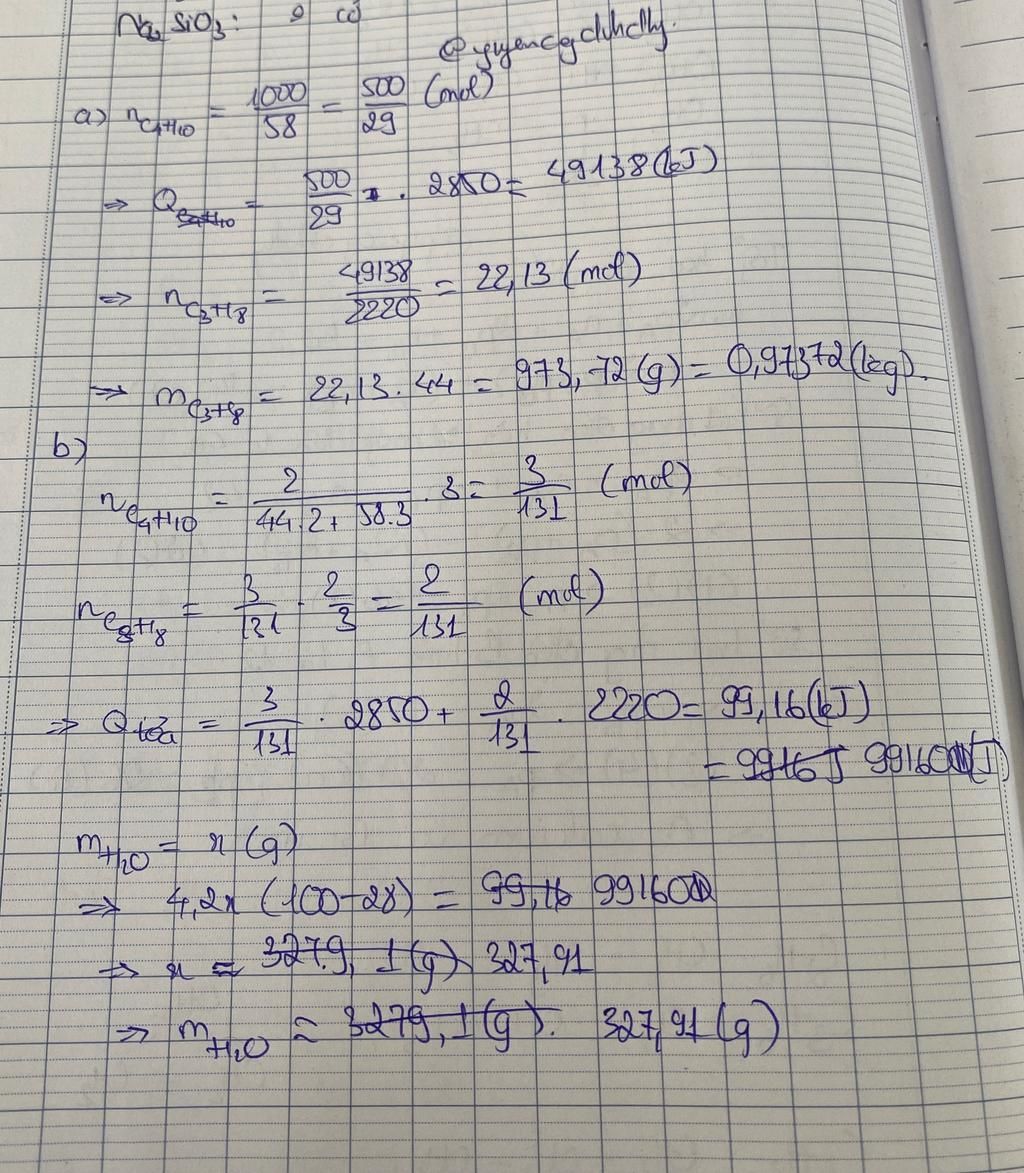 Na₂SiO₃:
@yuyencgchhclly.
a) n_C₄H₁₀ = 1000/58 = 500/29 (mol)
⇒ Q_C₄H₁₀ = 500/29 . 2850 = 49138 (kJ)
⇒ n_C₃H₈ = 49138/2220 = 22,13 (mol)
⇒ m_C₃H₈ = 22,13 . 44 = 973,72 (g) = 0,97372 (kg).
b)
n_C₄H₁₀ = 2/(44.2 + 58.3) . 3 = 3/131 (mol)
n_C₃H₈ = 3/131 . 2/3 = 2/131 (mol)
⇒ Q_tỏa = 3/131 . 2850 + 2/131 . 2220 = 99,16 (kJ)
= 9916 J 99160 (J)
m_H₂O = x (g)
⇒ 4,2x (100-28) = 99,16 99160
⇒ x ≈ 3279,1 (g) 327,91
⇒ m_H₂O ≈ 3279,1 (g). 327,91 (g)